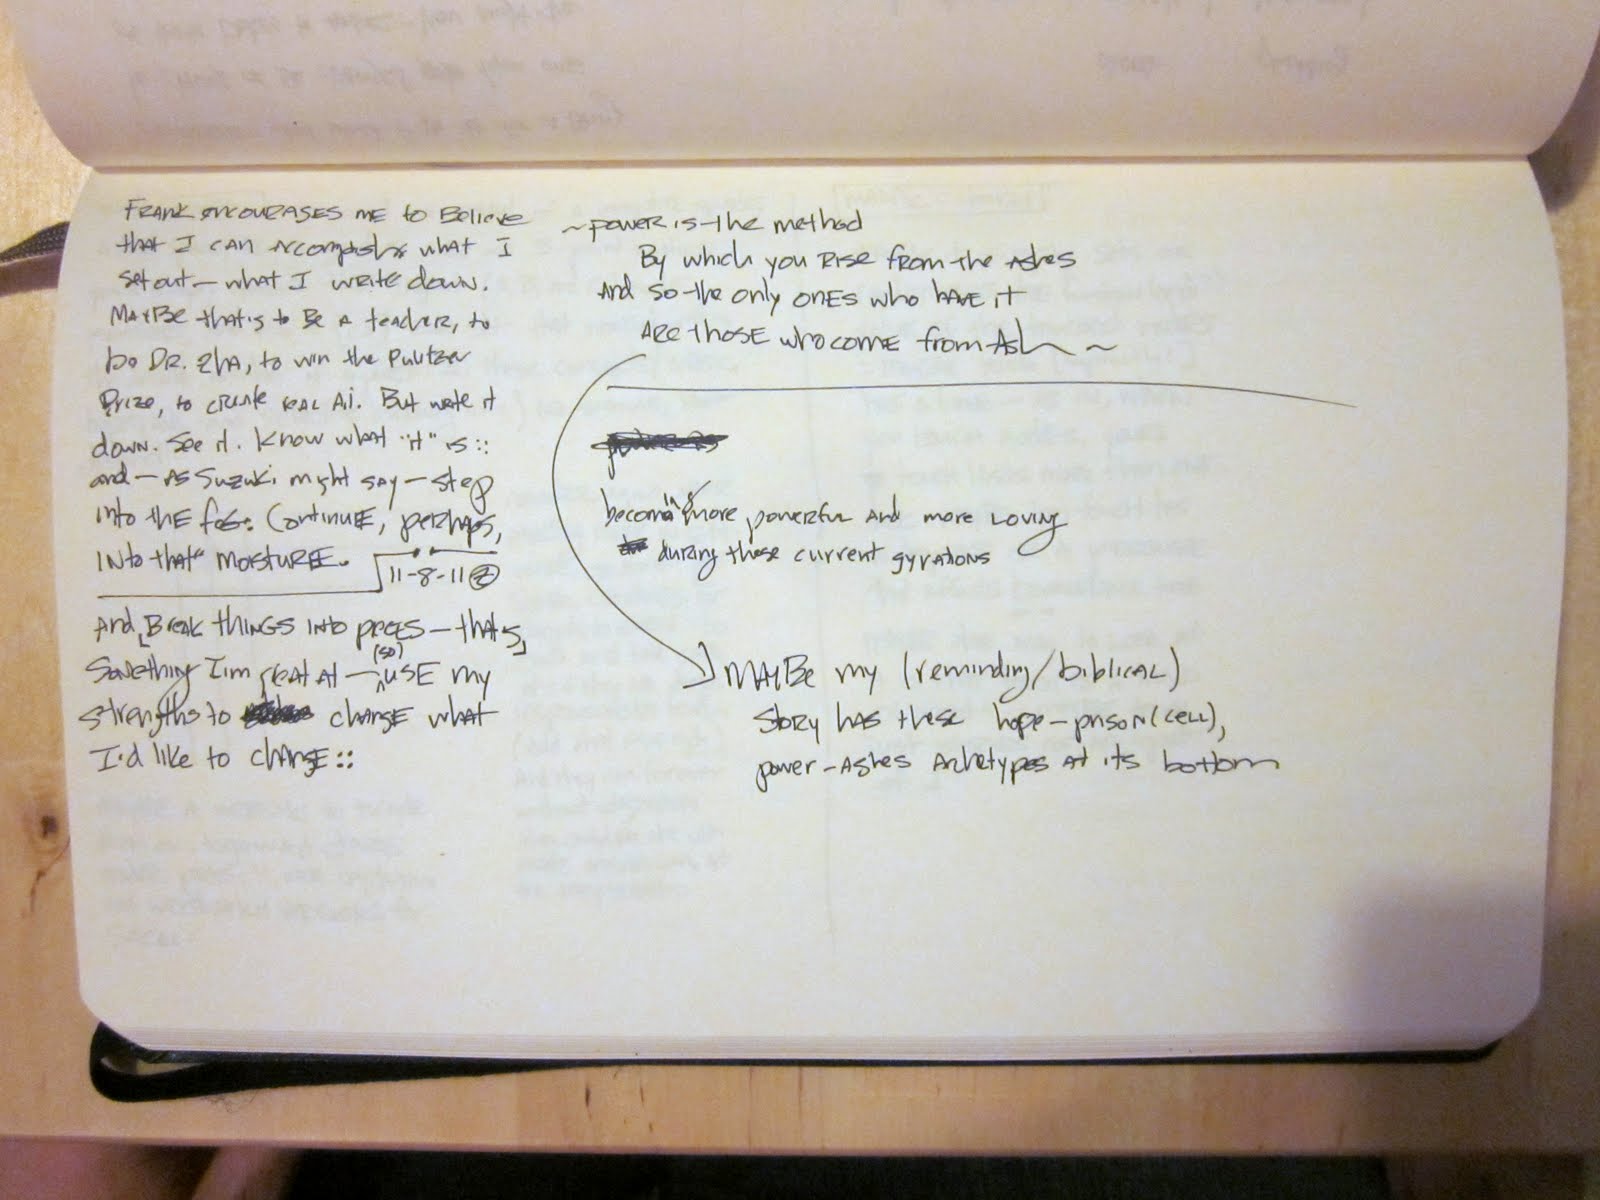 FRANK ENCOURAGES ME to Believe
that I can accomplish what I
set out — what I write down.
MAYBE that's to Be A teacher, to
Dr. Zha, to win the Pulitzer
Prize, to create real Ai. But write it
down. See it. Know what "it" is::
and — As Suzuki might say — step
into the fog: Continue, perhaps,
into that moisture.
11-8-11
And [Break things into pieces — that's]
Something I'm great at — (so) use my
strengths to change what
I'd like to change::
~ power is the method
By which you Rise from the Ashes
And so the only ones who have it
Are those who come from Ash ~
becoming more powerful and more loving
during these current gyrations
MAYBE my (reminding/biblical)
Story has these hope-prison(cell),
power-Ashes Archetypes At its bottom